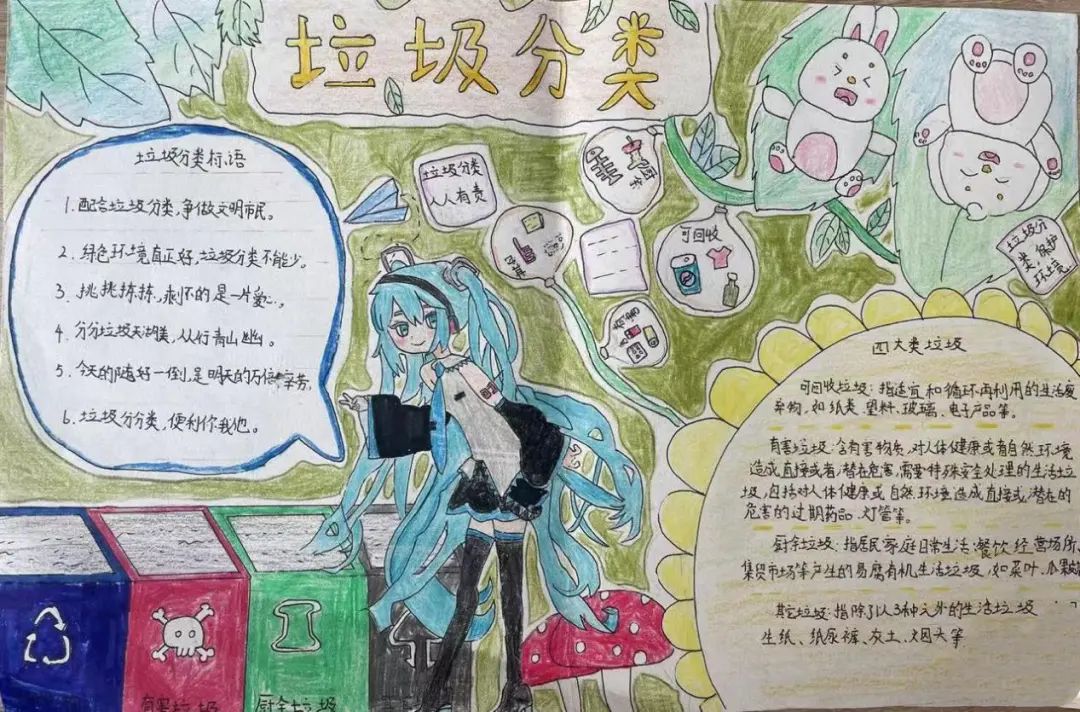 垃圾分类
垃圾分类标语
1. 配合垃圾分类,争做文明市民。
2. 绿色环境真正好,垃圾分类不能少。
3. 挑挑拣拣,剩下的是一片爱心。
4. 分分垃圾天湖美,从行青山幽。
5. 今天的随好一倒,是明天的万倍辛劳。
6. 垃圾分分类,便利你我他。
垃圾分类
人人有责
可回收
垃圾分
类,保护
环境
四大类垃圾
可回收垃圾:指适宜和循环再利用的生活废
弃物,如纸类、塑料、玻璃、电子产品等。
有害垃圾:含有害物质,对人体健康或有自然环境
造成直接或者潜在危害,需要特殊安全处理的生活垃
圾,包括对人体健康或自然环境造成直接或潜在的
危害的过期药品、灯管等。
厨余垃圾:指居民家庭日常生活、餐饮经营场所
集贸市场等产生的易腐有机生活垃圾,如菜叶、瓜果
其它垃圾:指除了以3种之外的生活垃圾
生纸、纸尿裤、灰土、烟头等
02
有害垃圾
厨余垃圾